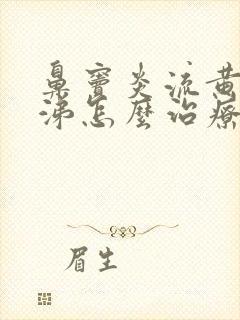 鼻竇炎流黃
涕怎麼治療
眉生